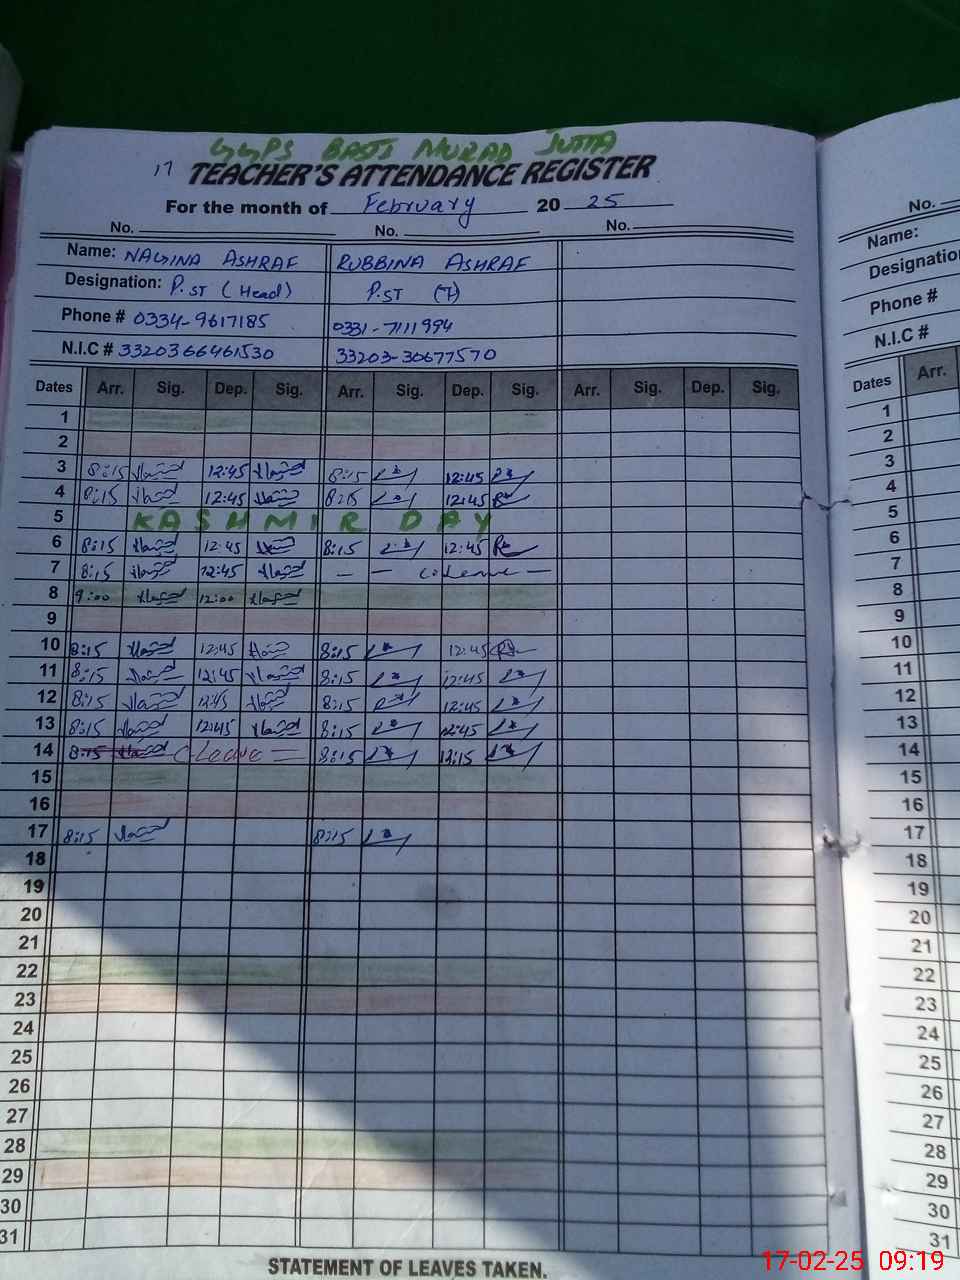 GGPS BASTI MURAD JUTTA
17 TEACHER'S ATTENDANCE REGISTER
For the month of February 20 25
No. No. No.
Name: NAGINA ASHRAF RUBBINA ASHRAF
Designation: P.ST (Head) P.ST (7)
Phone # 0334-9617185 0331-7111994
N.I.C # 3320366461530 33203-30677570
Dates Arr. Sig. Dep. Sig. Arr. Sig. Dep. Sig. Arr. Sig. Dep. Sig.
1
2
3 8:15 12:45 8:15 12:45
4 8:15 12:45 8:15 12:45
5 KASHMIR DAY
6 8:15 12:45 8:15 12:45
7 8:15 12:45 — — C.Leave —
8 9:00 12:00
9
10 8:15 12:45 8:15 12:45
11 8:15 12:45 8:15 12:45
12 8:15 12:45 8:15 12:45
13 8:15 12:45 8:15 12:45
14 8:15 C Leave 8:15 12:15
15
16
17 8:15 8:15
18
19
20
21
22
23
24
25
26
27
28
29
30
31
STATEMENT OF LEAVES TAKEN.
No.
Name:
Designation
Phone #
N.I.C #
Dates Arr.
1
2
3
4
5
6
7
8
9
10
11
12
13
14
15
16
17
18
19
20
21
22
23
24
25
26
27
28
29
30
31
17-02-25 09:19